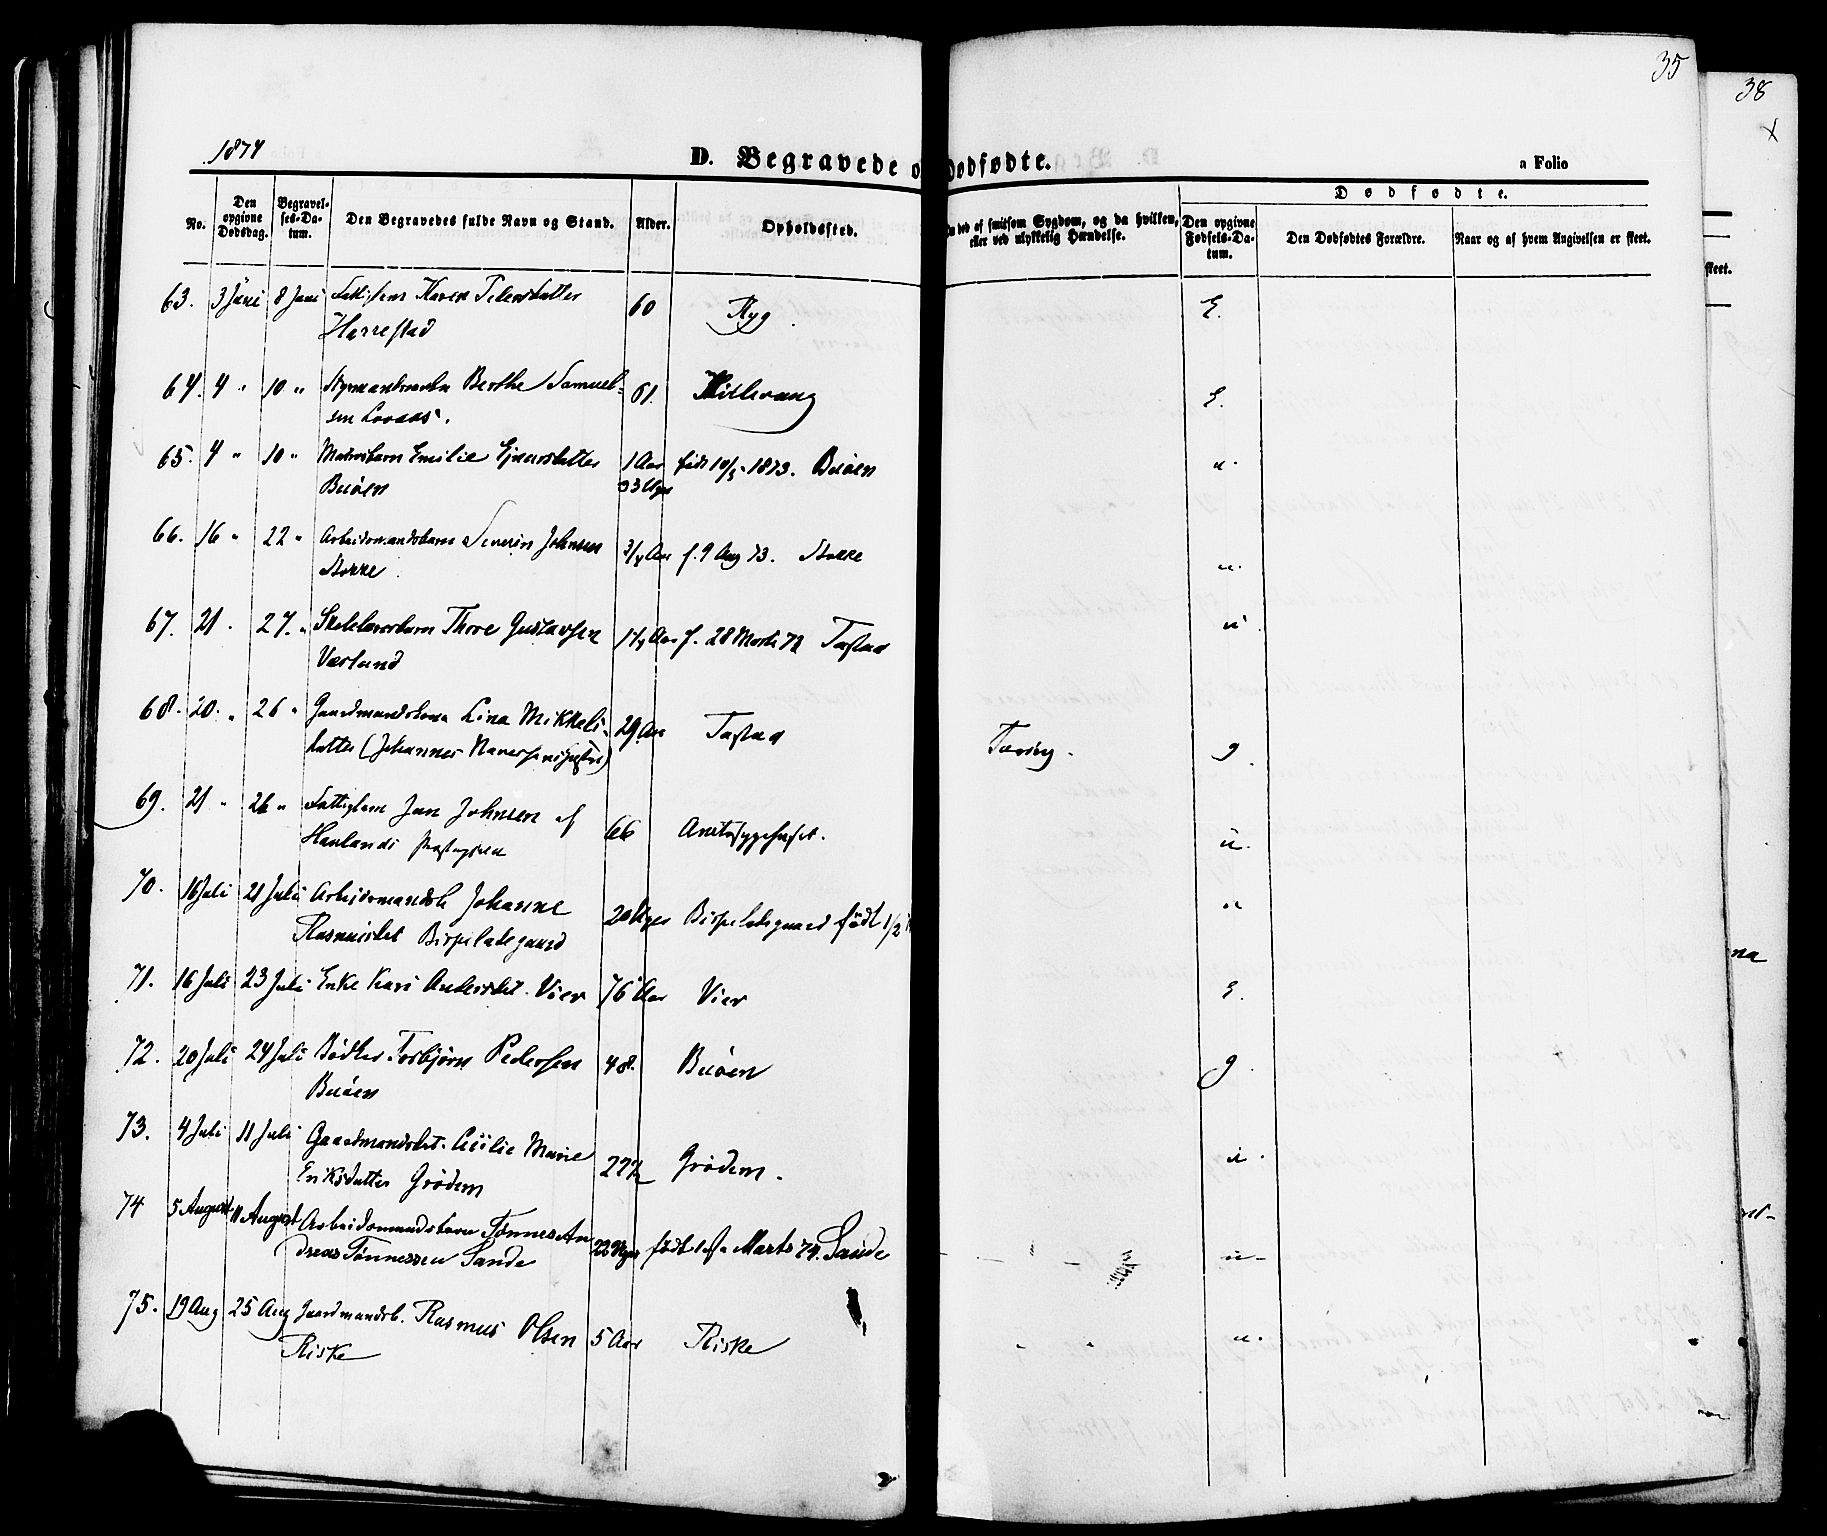 35
38
x
1874
D. Begravede o
Dødfødte.
a Folio
No.
Den opgivne Dødsdag.
Begravelses-Datum.
Den Begravedes fulde Navn og Stand.
Alder.
Opholdssted.
ved af smitsom Sygdom, og da hvilken, eller ved ulykkelig Hændelse.
Dødfødte.
Den opgivne Fødsels-Datum.
Den Dødfødtes Forældre.
Naar og af hvem Angivelsen er skeet.
skeet.
63. 3 Juni 8 Juni Karen Pedersdatter 60 Ryg. E.
Harrestad
64. 4 " 10 " Berthe Samuel- 61. Hillevaag E.
sen Lovaas.
65. 4 " 10 " Emilie Ejnarsdatter 1 Aar født 10/5 1873. Buøen u.
Buøen 3 Uger
66. 16 " 22 " Arbeidsmandsbarn Severin Johnsen 3/4 Aar f. 9 Aug 73. u.
67. 21 " 27. " Thore Gustavsen 1 1/4 Aar f. 28 Tastad u.
Værland
68. 20. " 26 " Gaardmandskone Lina Mikkels- 29 Aar Tastad Tæring. g.
datter (Johannes
69. 21 " 26 " Fattiglem Jan Johnsen af 66 Amtssygehuset. u.
Haulands
70. 16 Juli 21 Juli Arbeidsmandsb. Johanne 20 Uger Bispeladegaard født 1/2 u
Rasmusdat. Bispeladegaard
71. 16 Juli 23 Juli Enke Kari Andersdat. Vier 76 Aar Vier E.
72. 20 Juli 24 Juli Bødker Torbjørn Pedersen 48. Buøen g.
Buøen
73. 4 Juli 11 Juli Gaardmandsdat. Cecilie Marie 22 1/2 Grødem. u.
Eriksdatter Grødem
74 5 August 11 August Arbeidsmandsbarn Tønnes An- 22 Uger født 1ste Marts 74. Sande u-
dreas Tønnessen Sande
75. 19 Aug 25 Aug Gaardmandsb. Rasmus Olsen 5 Aar Riske u.
Riske
na